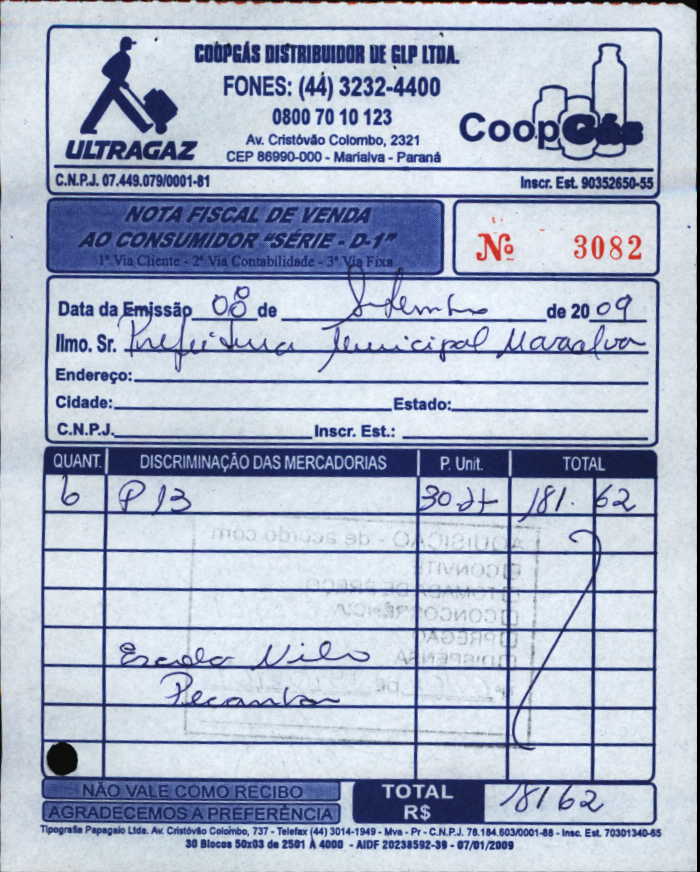 COOPGÁS DISTRIBUIDOR DE GLP LTDA.
FONES: (44) 3232-4400
0800 70 10 123
Av. Cristóvão Colombo, 2321
CEP 86990-000 - Marialva - Paraná
ULTRAGAZ
CoopGás
C.N.P.J. 07.449.079/0001-81 Inscr. Est. 90352650-55
NOTA FISCAL DE VENDA
AO CONSUMIDOR "SÉRIE - D-1"
1ª Via Cliente - 2ª Via Contabilidade - 3ª Via Fixa
Nº 3082
Data da Emissão 08 de Setembro de 2009
Ilmo. Sr. Prefeitura Municipal Marialva
Endereço:
Cidade: Estado:
C.N.P.J. Inscr. Est.:
QUANT. DISCRIMINAÇÃO DAS MERCADORIAS P. Unit. TOTAL
6 P13 30 27 181. 62
AQUISIÇÃO - de acordo com
CONVITE
TOMADA DE PREÇO
CONCORRÊNCIA
PREGÃO
DISPENSA
Escola Nilo
Peçanha
NÃO VALE COMO RECIBO
AGRADECEMOS A PREFERÊNCIA
TOTAL R$ 18162
Tipografia Papagaio Ltda. Av. Cristóvão Colombo, 737 - Telefax (44) 3014-1949 - Mva - Pr - C.N.P.J. 78.184.603/0001-88 - Insc. Est. 70301340-65
30 Blocos 50x03 de 2501 À 4000 - AIDF 20238592-39 - 07/01/2009